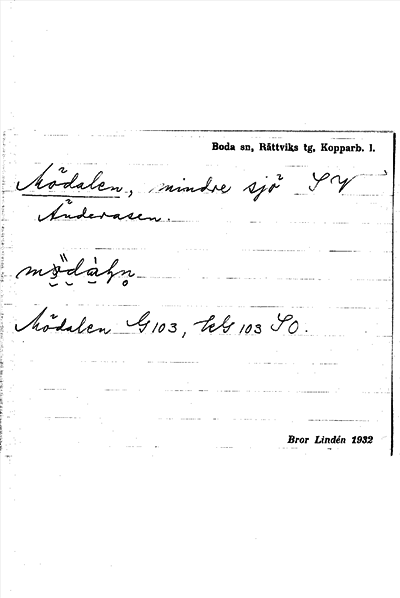 Boda sn, Rättviks tg, Kopparb. l.
Mödalen, mindre sjö S V
Änderasen.
Mödalen G 103, 103 S O.
Bror Lindén 1932